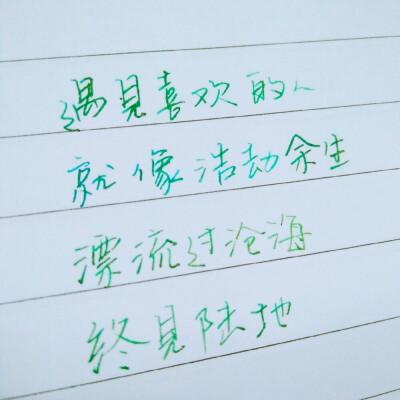 遇見喜欢的人
就像浩劫余生
漂流过沧海
终見陆地